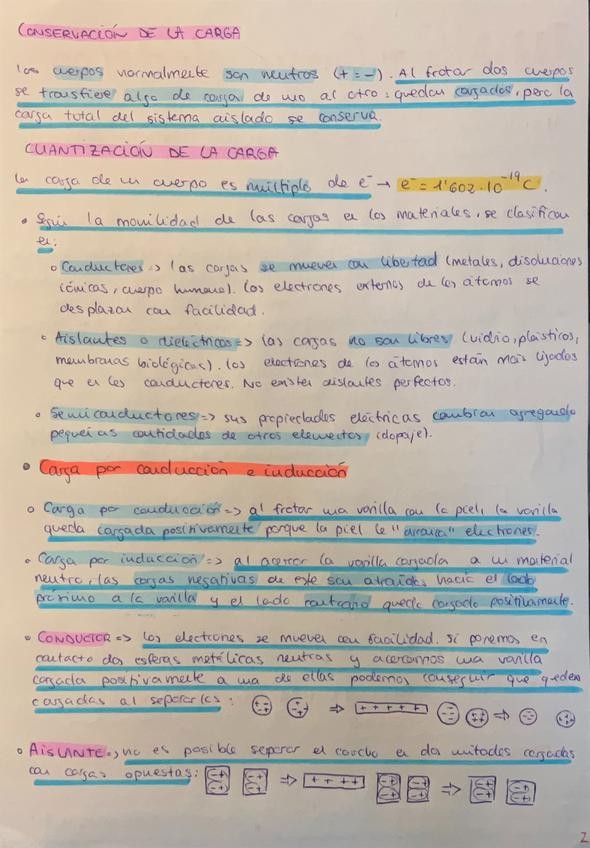 CONSERVACIÓN DE LA CARGA
los cuerpos normalmente son neutros (+ = -). Al frotar dos cuerpos
se transfiere algo de carga de uno al otro: quedan cargados, pero la
carga total del sistema aislado se conserva.
CUANTIZACIÓN DE LA CARGA
La carga de un cuerpo es múltiplo de e⁻ → e⁻ = 1'602·10⁻¹⁹C.
• Según la movilidad de las cargas en los materiales, se clasifican
en:
○ Conductores => las cargas se mueven con libertad (metales, disoluciones
iónicas, cuerpo humano). Los electrones externos de los átomos se
desplazan con facilidad.
○ Aislantes o dieléctricos => las cargas no son libres (vidrio, plásticos,
membranas biológicas). Los electrones de los átomos están más ligados
que en los conductores. No existen aislantes perfectos.
○ Semiconductores => sus propiedades eléctricas cambian agregando
pequeñas cantidades de otros elementos (dopaje).
• Carga por conducción e inducción
○ Carga por conducción => al frotar una varilla con la piel, la varilla
queda cargada positivamente porque la piel le "arranca" electrones.
○ Carga por inducción => al acercar la varilla cargada a un material
neutro, las cargas negativas de este son atraídas hacia el lado
próximo a la varilla y el lado contrario queda cargado positivamente.
○ CONDUCTOR => los electrones se mueven con facilidad. Si ponemos en
contacto dos esferas metálicas neutras y acercamos una varilla
cargada positivamente a una de ellas podemos conseguir que queden
cargadas al separarlas: ⇒ + + + + + ⇒
○ AISLANTE => no es posible separar el corcho en dos mitades cargadas
con cargas opuestas: ⇒ + + + + ⇒
2